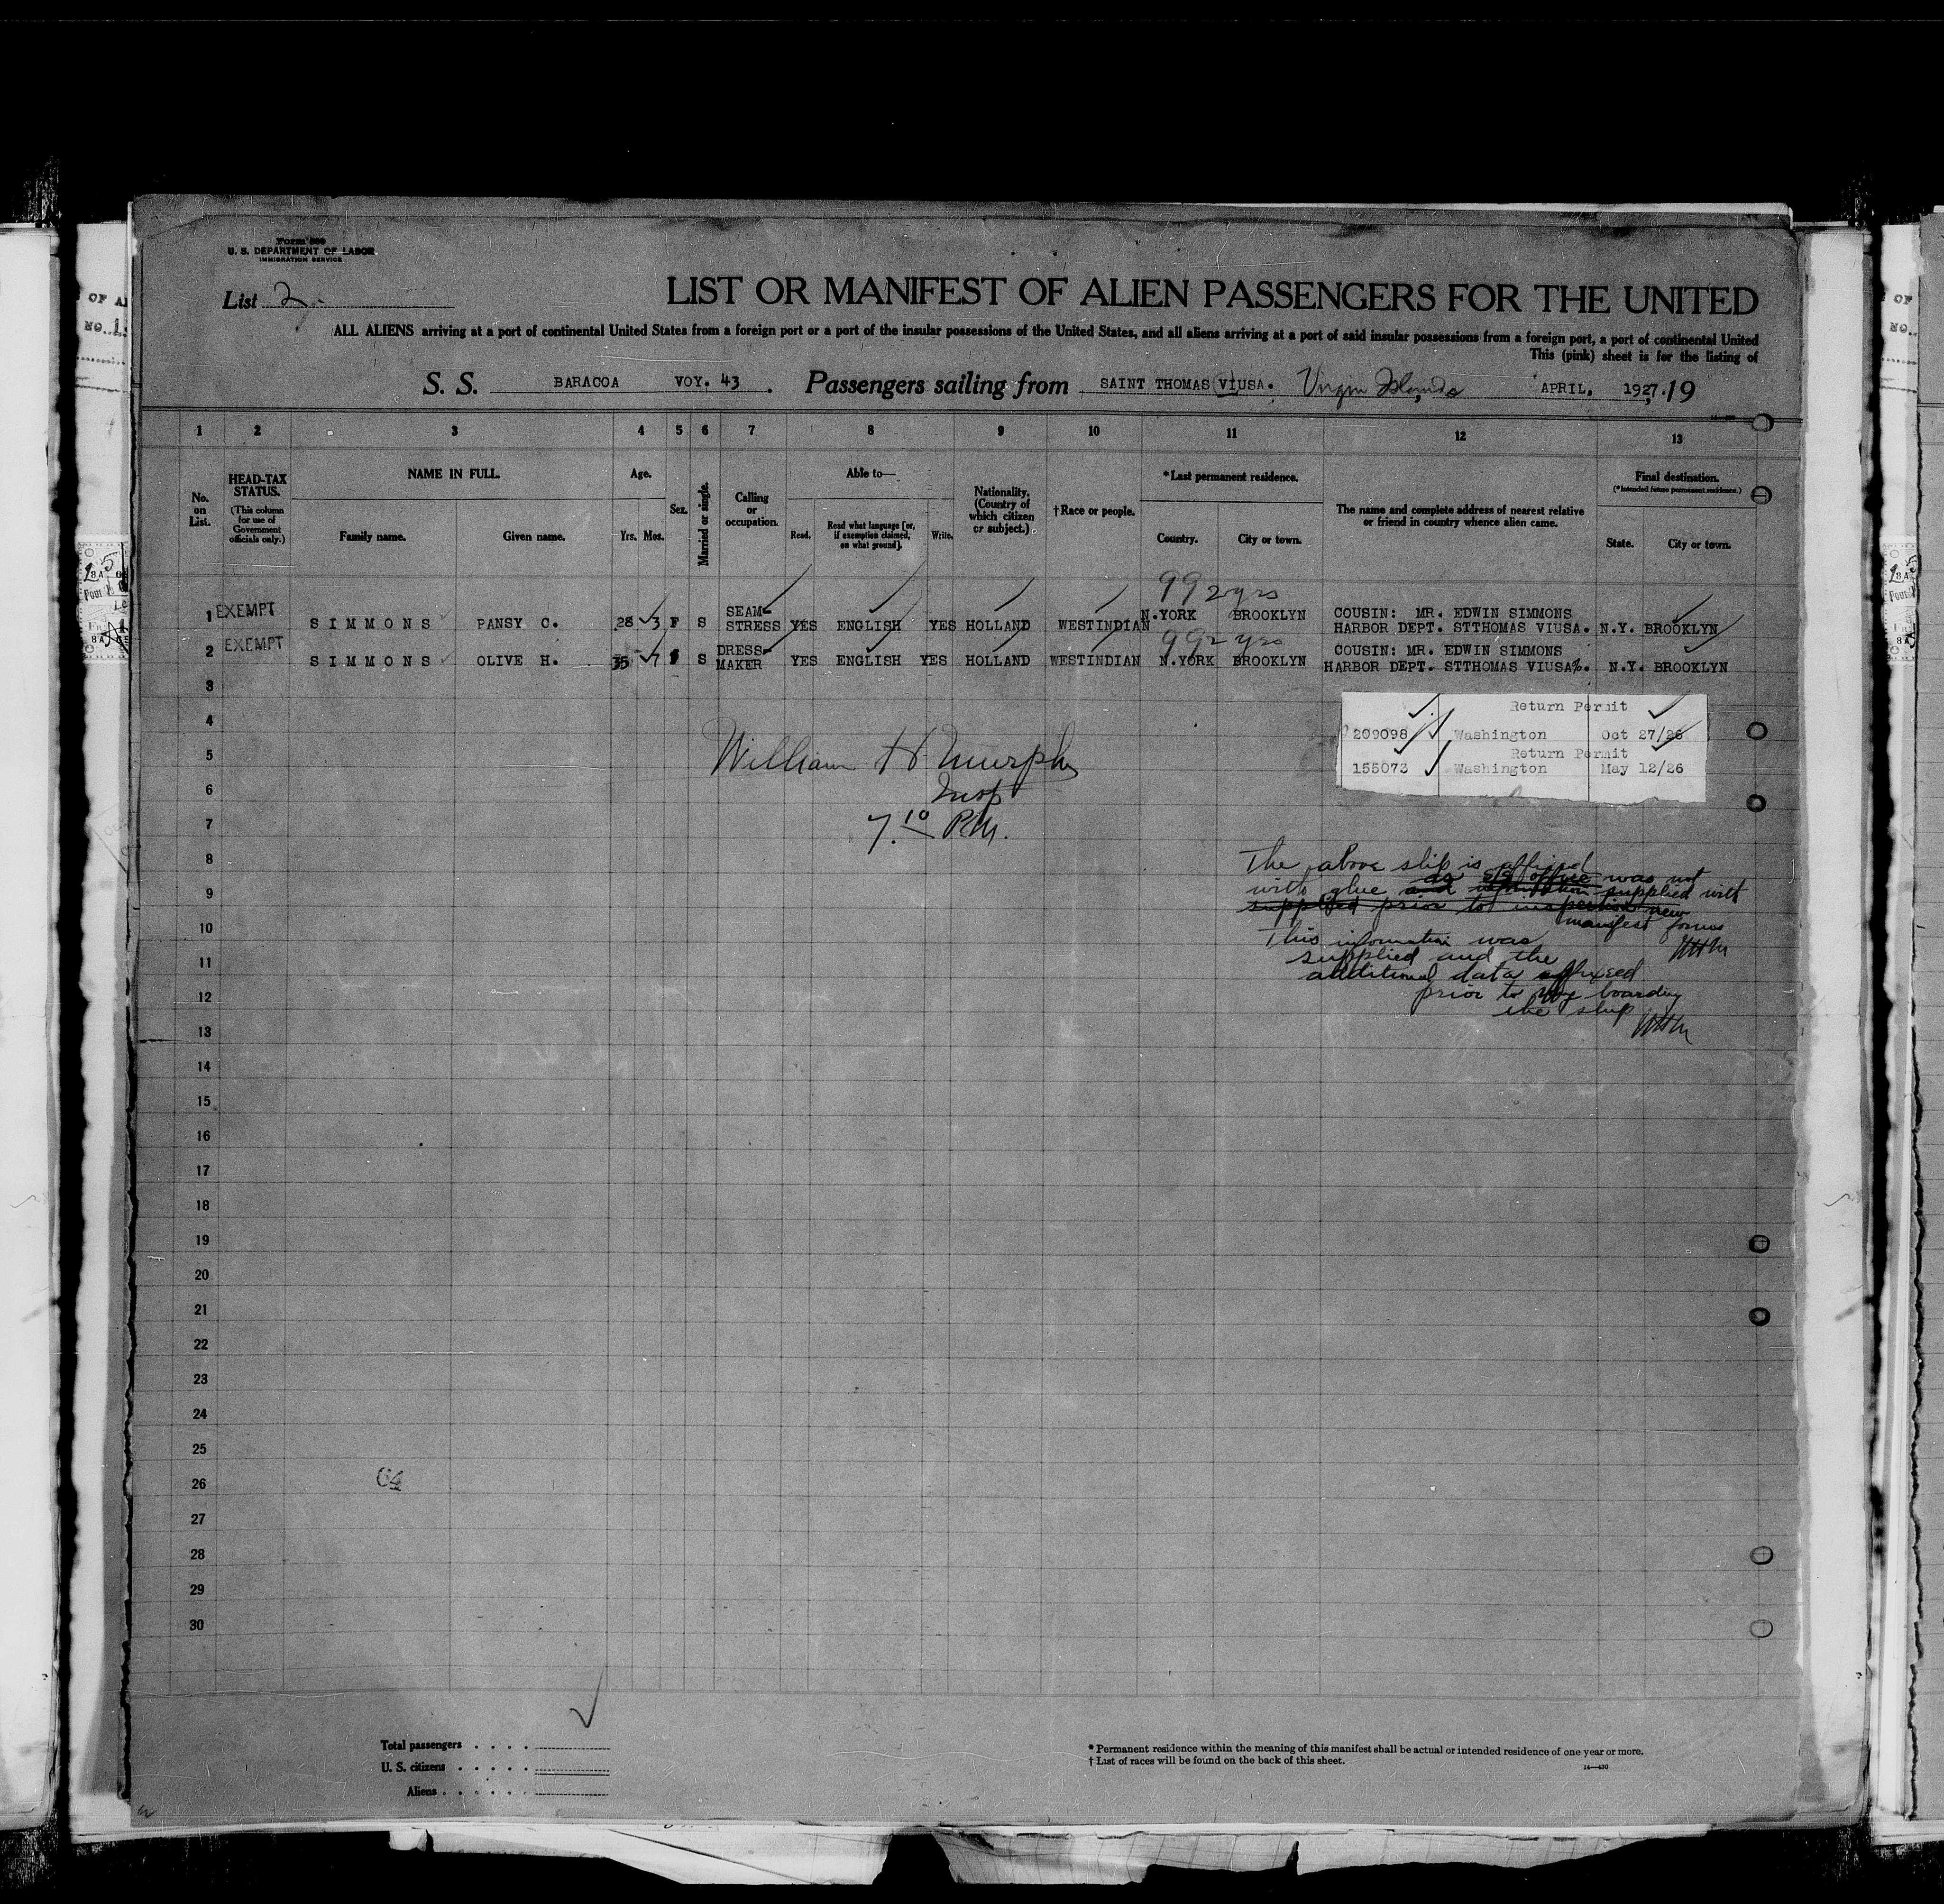 Form 500
U. S. DEPARTMENT OF LABOR
IMMIGRATION SERVICE
List 2.
LIST OR MANIFEST OF ALIEN PASSENGERS FOR THE UNITED
ALL ALIENS arriving at a port of continental United States from a foreign port or a port of the insular possessions of the United States, and all aliens arriving at a port of said insular possessions from a foreign port, a port of continental United
This (pink) sheet is for the listing of
S. S. BARACOA VOY. 43 . Passengers sailing from SAINT THOMAS VIUSA. Virgin Islands APRIL, 1927. , 19
1 2 3 4 5 6 7 8 9 10 11 12 13
No. on List.
HEAD-TAX STATUS.
(This column for use of Government officials only.)
NAME IN FULL.
Family name.
Given name.
Age.
Yrs. Mos.
Sex.
Married or single.
Calling or occupation.
Able to—
Read.
Read what language [or, if exemption claimed, on what ground].
Write.
Nationality. (Country of which citizen or subject.)
†Race or people.
*Last permanent residence.
Country.
City or town.
The name and complete address of nearest relative or friend in country whence alien came.
Final destination.
(*Intended future permanent residence.)
State.
City or town.
99 2 yrs
1 EXEMPT SIMMONS PANSY C. 28 3 F S SEAM-STRESS YES ENGLISH YES HOLLAND WESTINDIAN N.YORK BROOKLYN COUSIN: MR. EDWIN SIMMONS HARBOR DEPT. STTHOMAS VIUSA. N.Y. BROOKLYN
99 2 yrs
2 EXEMPT SIMMONS OLIVE H. 35 7 S DRESS-MAKER YES ENGLISH YES HOLLAND WESTINDIAN N.YORK BROOKLYN COUSIN: MR. EDWIN SIMMONS HARBOR DEPT. STTHOMAS VIUSA. N.Y. BROOKLYN
3
Return Permit
4
209098 Washington Oct 27/26
Return Permit
155073 Washington May 12/26
5
William H Murphy
6
Insp
7
7.10 P.M.
8
The above slip is affixed
9
with glue and as S/S office was not
supplied with
supplied prior to inspection new
10
manifest forms
WHM
This information was
11
supplied and the
additional data affixed
12
prior to my boarding
the ship
WHM
13
14
15
16
17
18
19
20
21
22
23
24
25
26
64
27
28
29
30
Total passengers . . . .
U. S. citizens . . . . .
Aliens . . . . . .
* Permanent residence within the meaning of this manifest shall be actual or intended residence of one year or more.
† List of races will be found on the back of this sheet.
14—430